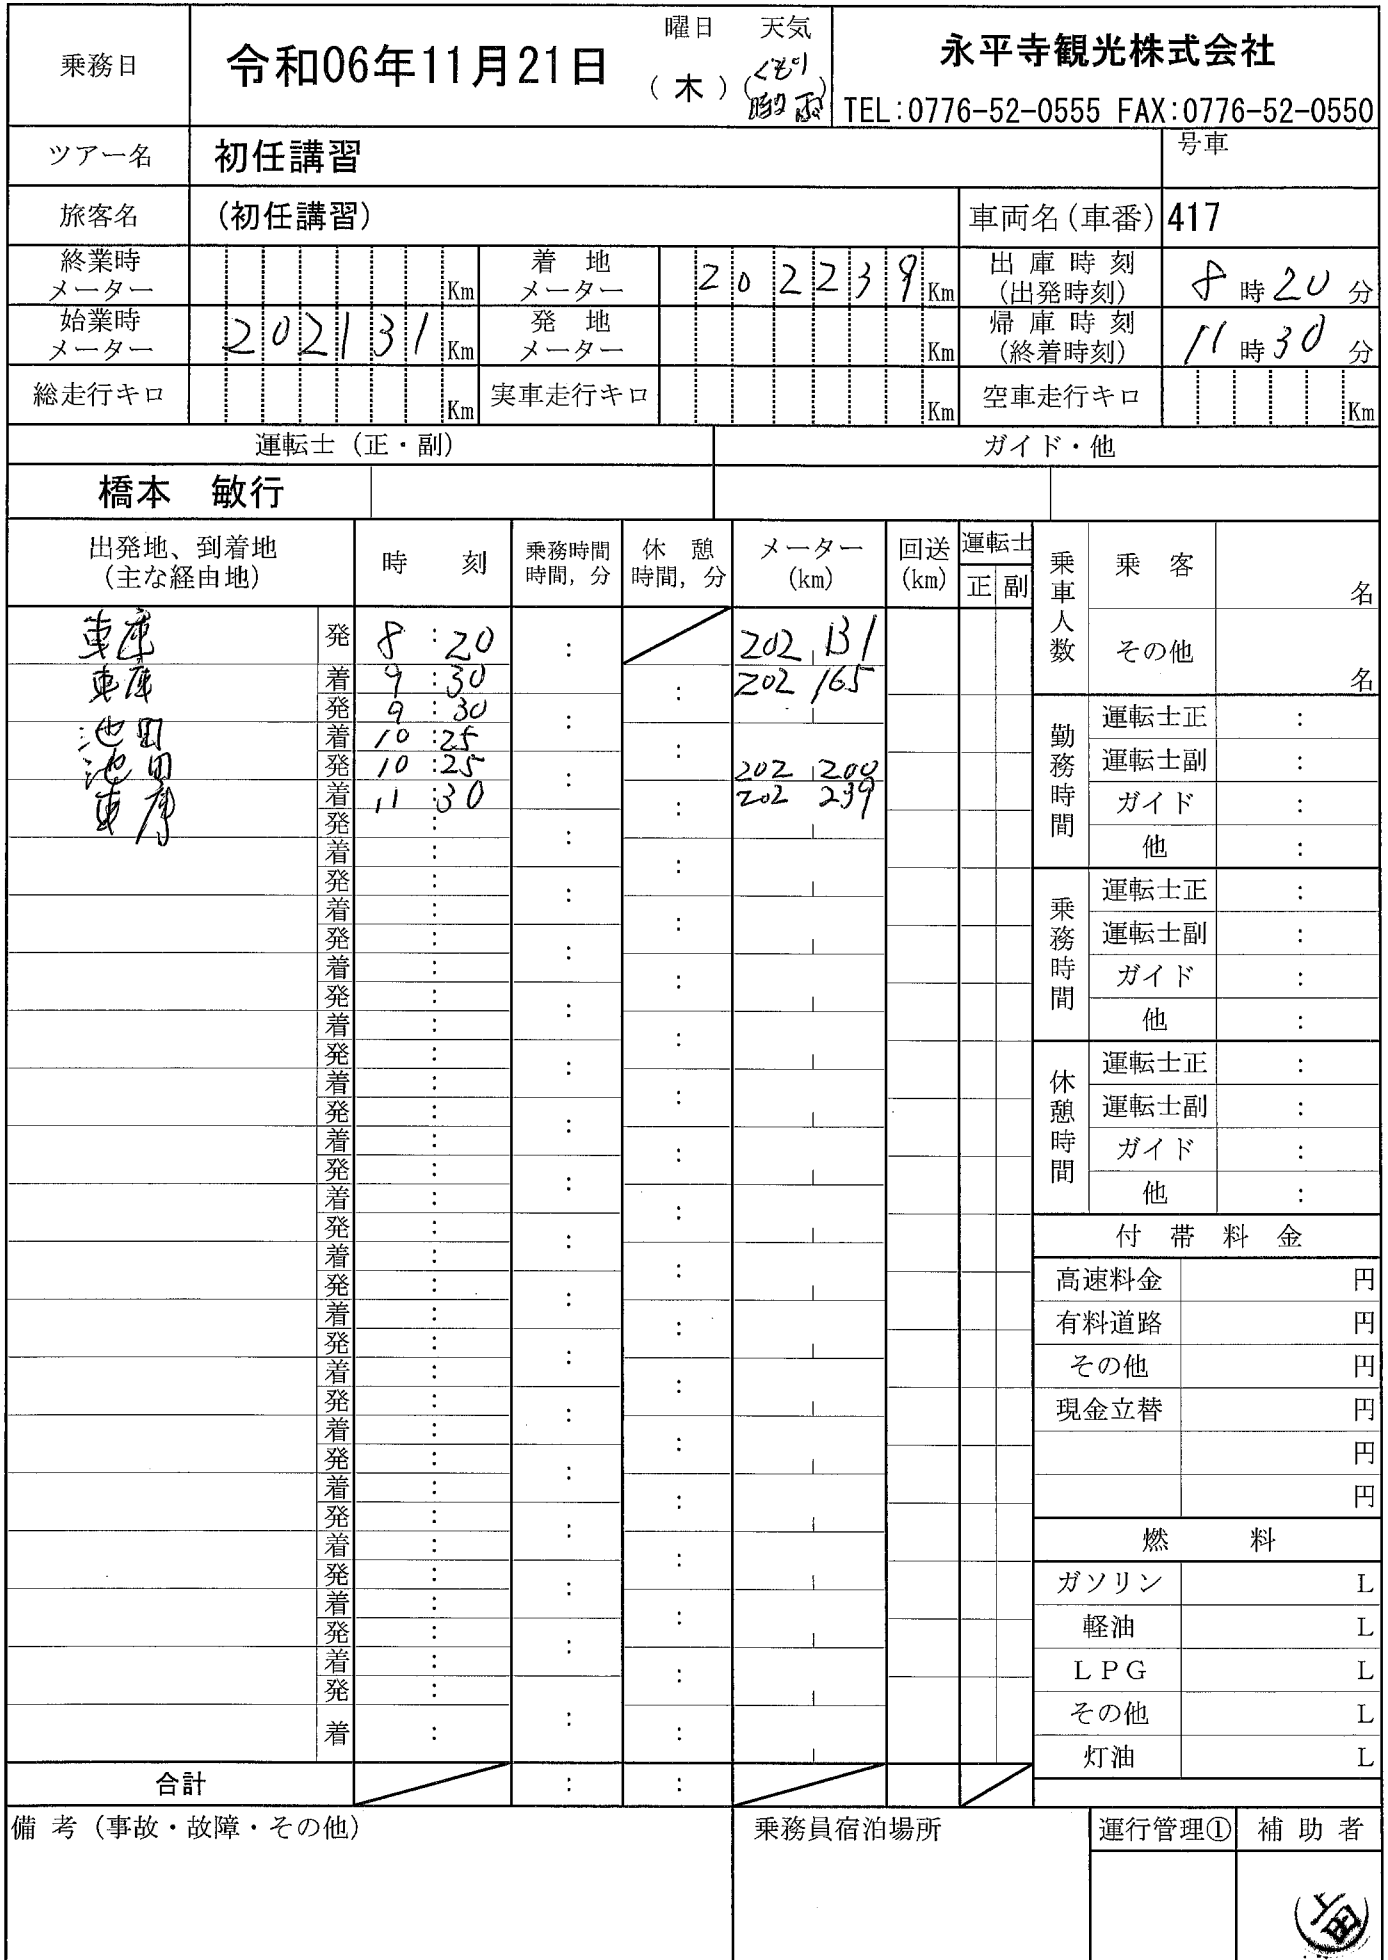 乗務日 令和06年11月21日 曜日 天気 (木) (くもり 時々雨) 永平寺観光株式会社
TEL:0776-52-0555 FAX:0776-52-0550
ツアー名 初任講習 号車
旅客名 (初任講習) 車両名(車番) 417
終業時メーター Km 着地メーター 202239 Km 出庫時刻(出発時刻) 8時20分
始業時メーター 202131 Km 発地メーター Km 帰庫時刻(終着時刻) 11時30分
総走行キロ Km 実車走行キロ Km 空車走行キロ Km
運転士(正・副) ガイド・他
橋本 敏行
出発地、到着地(主な経由地) 時刻 乗務時間 時間, 分 休憩 時間, 分 メーター(km) 回送(km) 運転士 正 副
車庫 発 8:20 : 202,131
車庫 着 9:30 : 202 165
発 9:30 :
池田 着 10:25 :
池田 発 10:25 : 202,200
車庫 着 11:30 : 202 239
発 : :
着 : :
発 : :
着 : :
発 : :
着 : :
発 : :
着 : :
発 : :
着 : :
発 : :
着 : :
発 : :
着 : :
発 : :
着 : :
発 : :
着 : :
発 : :
着 : :
発 : :
着 : :
発 : :
着 : :
発 : :
着 : :
発 : :
着 : :
発 : :
着 : :
発 : :
着 : : :
合計 : :
乗車人数 乗客 名
その他 名
勤務時間 運転士正 :
運転士副 :
ガイド :
他 :
乗務時間 運転士正 :
運転士副 :
ガイド :
他 :
休憩時間 運転士正 :
運転士副 :
ガイド :
他 :
付帯料金
高速料金 円
有料道路 円
その他 円
現金立替 円
円
円
燃料
ガソリン L
軽油 L
LPG L
その他 L
灯油 L
備考(事故・故障・その他) 乗務員宿泊場所 運行管理① 補助者
上田